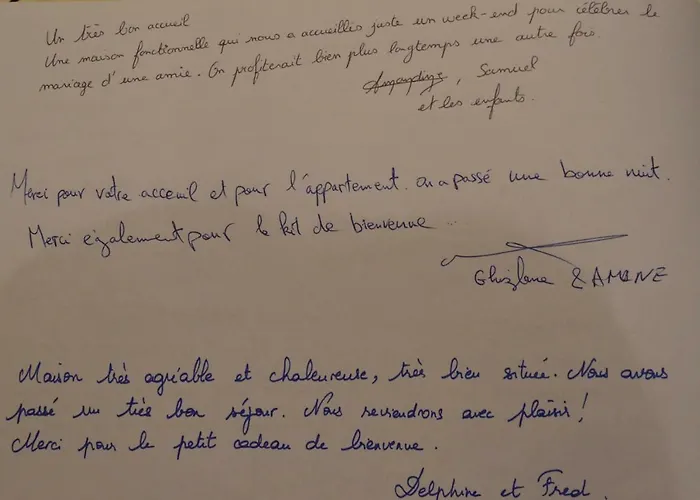 Un très bon accueil
Une maison fonctionnelle qui nous a accueillis juste un week-end pour célébrer le
mariage d'une amie. On profiterait bien plus longtemps une autre fois.
, Samuel
et les enfants.
Merci pour votre acceuil et pour l'appartement. on a passé une bonne nuit.
Merci également pour le kit de bienvenue...
Ghizlane & AMINE
Maison très agréable et chaleureuse, très bien située. Nous avons
passé un très bon séjour. Nous reviendrons avec plaisir!
Merci pour le petit cadeau de bienvenue.
Delphine et Fred.